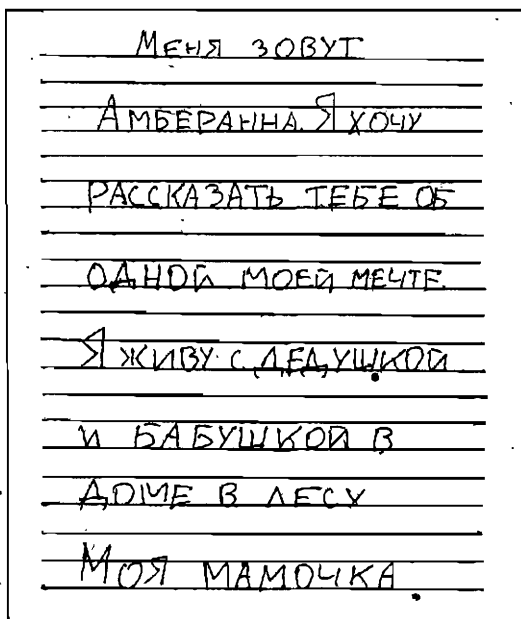 Меня зовут
Амберанна. Я хочу
рассказать тебе об
одной моей мечте.
Я живу с дедушкой
и бабушкой в
доме в лесу
Моя мамочка